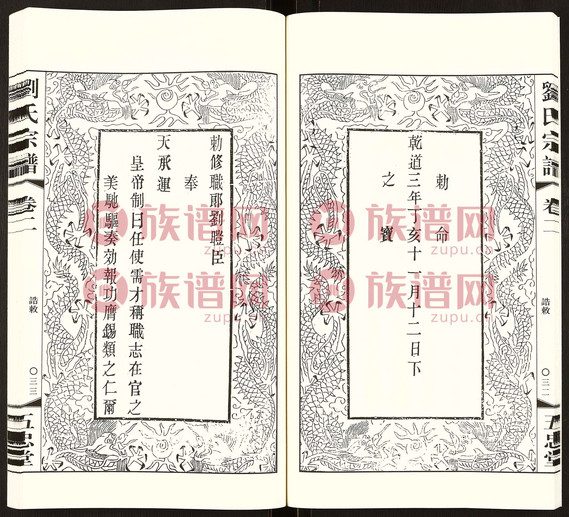 劉氏宗譜
卷一
誥敕
〇三二
五忠堂
勅命
乾道三年丁亥十一月十二日下
之寶
勅修職郎劉瞪臣
奉
天承運
皇帝制曰任使需才稱職志在官之
美馳驅奏効報功膺錫類之仁爾
劉氏宗譜
卷一
誥敕
〇三三
五忠堂
族谱网
zupu.cn
族谱网
zupu.cn
族谱网
zupu.cn
族谱网
zupu.cn